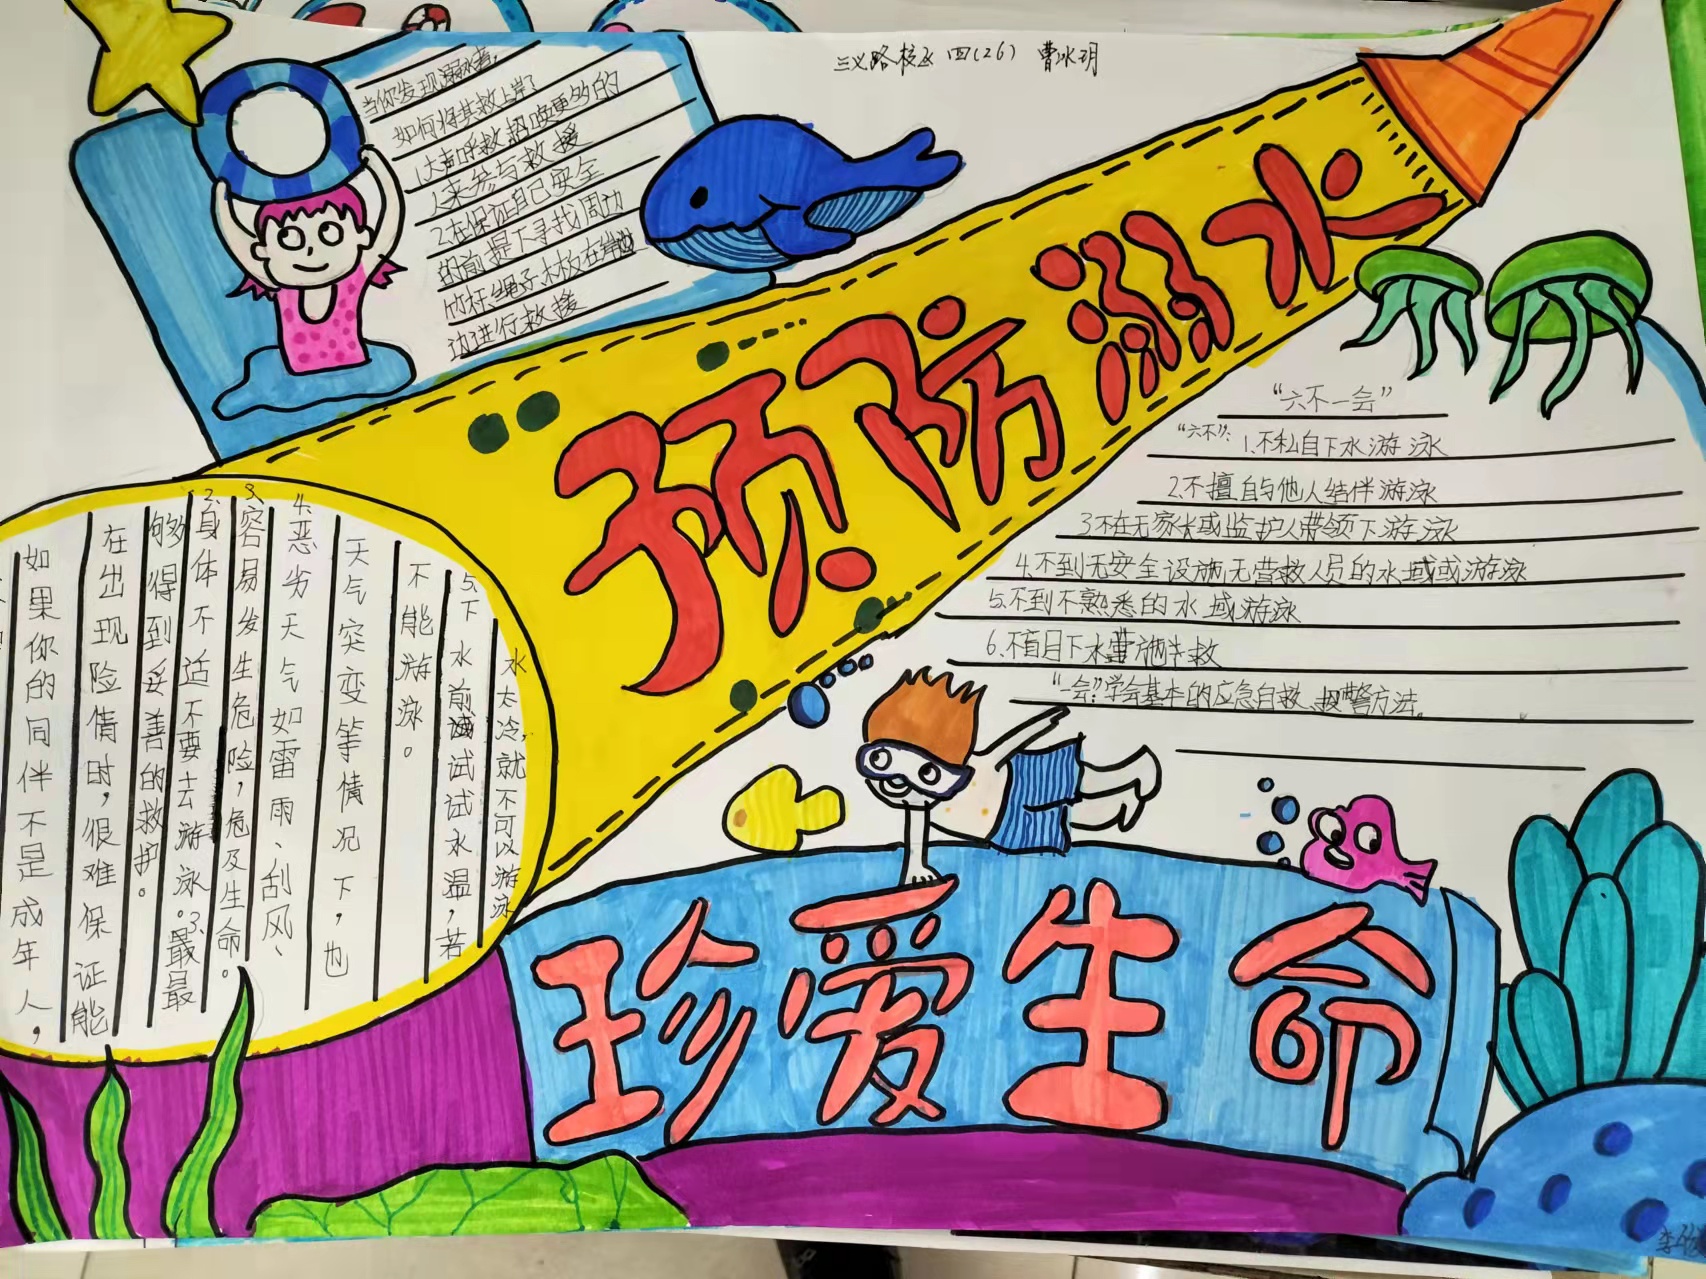 三义路校区 四(26) 曹冰玥
当你发现溺水者,
如何将其救上岸?
1.大声呼救招唤更多的
人来参与救援
2.在保证自己安全
的前提下寻找周边
竹杆、绳子、木板在岸边
边进行救援
预防溺水
“六不一会”
“六不”: 1.不私自下水游泳
2.不擅自与他人结伴游泳
3.不在无家长或监护人带领下游泳
4.不到无安全设施,无营救人员的水域或游泳
5.不到不熟悉的水域游泳
6.不盲目下水施救
“一会”:学会基本的应急自救、报警方法。
如果你的同伴不是成年人,
在出现险情时,很难保证能
够得到妥善的救护。
2、身体不适不要去游泳。3、最最
3、容易发生危险,危及生命。
4.恶劣天气如雷雨、刮风、
天气突变等情况下,也
不能游泳。
5、下水前试试水温,若
水太冷,就不可以游泳
珍爱生命